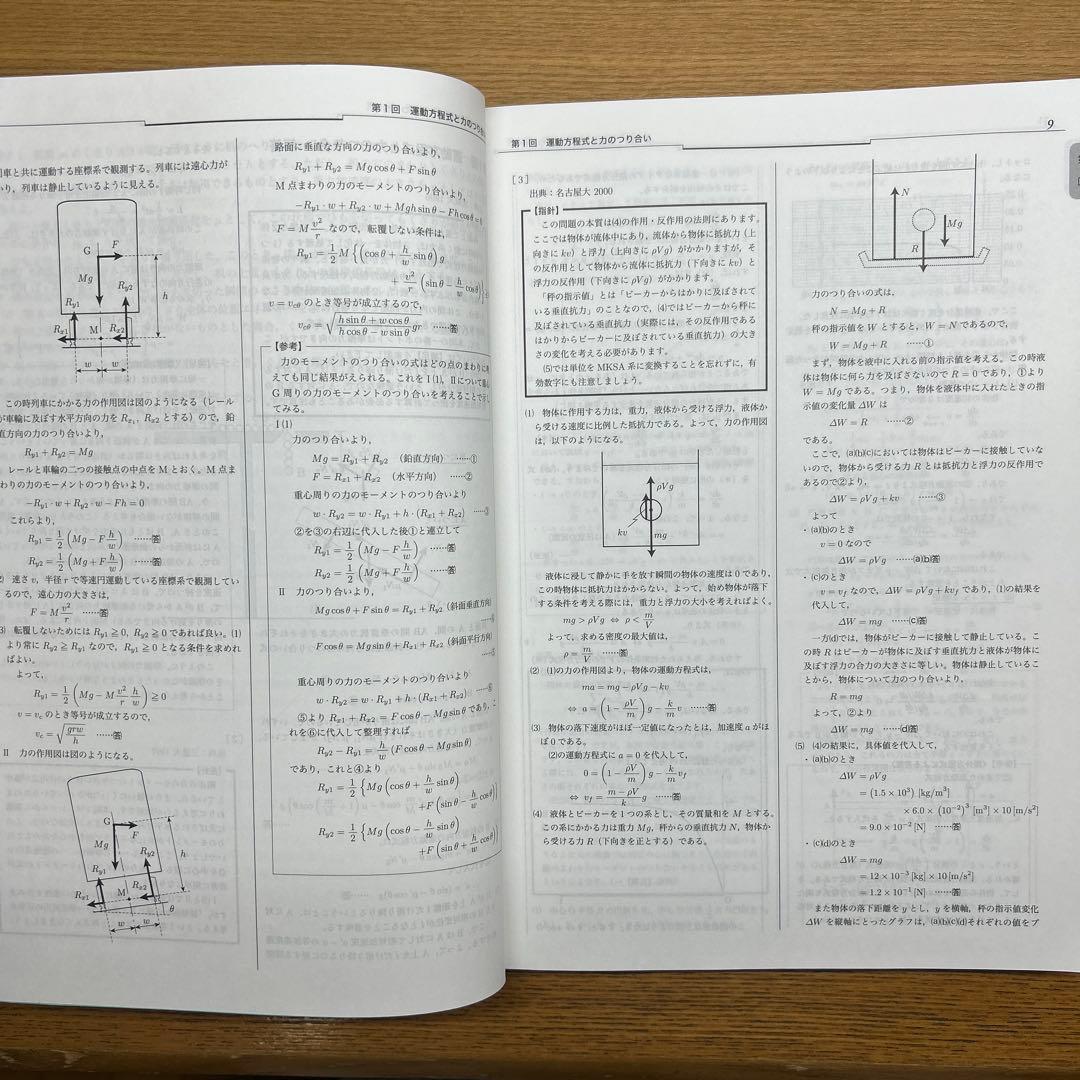 第1回 運動方程式と力のつり合
車と共に運動する座標系で観測する。列車には遠心力が
かり、列車は静止しているように見える。
G
F
Mg
h
Ry1
Ry2
Rx1
M
Rx2
w
w
この時列車にかかる力の作用図は図のようになる（レール
が車輪に及ぼす水平方向の力を Rx1, Rx2 とする）ので，鉛
直方向の力のつり合いより，
Ry1 + Ry2 = Mg
レールと車輪の二つの接触点の中点を M とおく。M 点ま
わりの力のモーメントのつり合いより，
−Ry1·w + Ry2·w − Fh = 0
これらより，
Ry1 = 1/2 (Mg − F h/w) ……答
Ry2 = 1/2 (Mg + F h/w) ……答
速さ v，半径 r で等速円運動している座標系で観測してい
るので，遠心力の大きさは，
F = M v²/r ……答
転覆しないためには Ry1 ≧ 0, Ry2 ≧ 0 であれば良い。(1)
より常に Ry2 ≧ Ry1 なので，Ry1 ≧ 0 となる条件を求めれ
ばよい。
よって，
Ry1 = 1/2 (Mg − M v²/r h/w) ≧ 0
v = vc のとき等号が成立するので，
vc = √(grw/h) ……答
II 力の作用図は図のようになる。
G
F
Mg
h
Ry1
Ry2
Rx1
M
Rx2
θ
w
w
路面に垂直な方向の力のつり合いより，
Ry1 + Ry2 = Mg cos θ + F sin θ
M 点まわりの力のモーメントのつり合いより，
−Ry1·w + Ry2·w + Mgh sin θ − Fh cos θ = 0
F = M v²/r なので，転覆しない条件は，
Ry1 = 1/2 M {(cos θ + h/w sin θ) g
+ v²/r (sin θ − h/w cos θ)}
v = vcθ のとき等号が成立するので，
vcθ = √((h sin θ + w cos θ)/(h cos θ − w sin θ) gr) ……答
【参考】
力のモーメントのつり合いの式はどの点のまわりに
えても同じ結果がえられる。これを I (1)，II について
G 周りの力のモーメントのつり合いを考えることで
てみる。
I (1)
力のつり合いより，
Mg = Ry1 + Ry2 （鉛直方向） ……①
F = Rx1 + Rx2 （水平方向） ……②
重心周りの力のモーメントのつり合いより
w·Ry2 = w·Ry1 + h·(Rx1 + Rx2) ……③
②を③の右辺に代入した後①と連立して
Ry1 = 1/2 (Mg − F h/w) ……答
Ry2 = 1/2 (Mg + F h/w) ……答
II 力のつり合いより，
Mg cos θ + F sin θ = Ry1 + Ry2 (斜面垂直方向)
F cos θ = Mg sin θ + Rx1 + Rx2 (斜面平行方向)
重心周りの力のモーメントのつり合いより
w·Ry2 = w·Ry1 + h·(Rx1 + Rx2) ……⑥
⑤より Rx1 + Rx2 = F cos θ − Mg sin θ であり，こ
れを⑥に代入して整理すれば
Ry2 − Ry1 = h/w (F cos θ − Mg sin θ)
であり，これと④より
Ry1 = 1/2 {Mg (cos θ + h/w sin θ)
+F (sin θ − h/w cos θ)}
Ry2 = 1/2 {Mg (cos θ − h/w sin θ)
+F (sin θ + h/w cos θ)}
第1回 運動方程式と力のつり合い
9
［3］
出典：名古屋大 2000
【指針】
この問題の本質は(4)の作用・反作用の法則にあります。
ここでは物体が流体中にあり，流体から物体に抵抗力（上
向きに kv）と浮力（上向きに ρVg）がかかりますが，そ
の反作用として物体から流体に抵抗力（下向きに kv）と
浮力の反作用（下向きに ρVg）がかかります。
「秤の指示値」とは「ビーカーからはかりに及ぼされて
いる垂直抗力」のことなので，(4)ではビーカーから秤に
及ぼされている垂直抗力（実際には，その反作用である
はかりからビーカーに及ぼされている垂直抗力）の大き
さの変化を考える必要があります。
(5)では単位を MKSA 系に変換することを忘れずに，有
効数字にも注意しましょう。
(1) 物体に作用する力は，重力，液体から受ける浮力，液体か
ら受ける速度に比例した抵抗力である。よって，力の作用図
は，以下のようになる。
ρVg
kv
mg
液体に浸して静かに手を放す瞬間の物体の速度は 0 であり，
この時物体に抵抗力はかからない。よって，始め物体が落下
する条件を考える際には，重力と浮力の大小を考えればよく，
mg > ρVg ⇔ ρ < m/V
よって，求める密度の最大値は，
ρ = m/V ……答
(2) (1)の力の作用図より，物体の運動方程式は，
ma = mg − ρVg − kv
⇔ a = (1 − ρV/m) g − k/m v ……答
(3) 物体の落下速度がほぼ一定値になったとは，加速度 a がほ
ぼ 0 である。
(2)の運動方程式に a = 0 を代入して，
0 = (1 − ρV/m) g − k/m vf
⇔ vf = (m − ρV)/k g ……答
(4) 液体とビーカーを 1 つの系とし，その質量和を M とする。
この系にかかる力は重力 Mg，秤からの垂直抗力 N，物体か
ら受ける力 R（下向きを正とする）である。
N
R
Mg
力のつり合いの式は，
N = Mg + R
秤の指示値を W とすると，W = N であるので，
W = Mg + R ……①
まず，物体を液中に入れる前の指示値を考える。この時液
体は物体に何ら力を及ぼさないので R = 0 であり，①より
W = Mg である。つまり，物体を液体中に入れたときの指
示値の変化量 ΔW は
ΔW = R ……②
である。
ここで，(a)(b)(c)においては物体はビーカーに接触してい
ないので，物体から受ける力 R とは抵抗力と浮力の反作用で
あるので②より，
ΔW = ρVg + kv ……③
よって
・(a)(b)のとき
v = 0 なので
ΔW = ρVg ……(a)(b)答
・(c)のとき
v = vf なので，ΔW = ρVg + kvf であり，(1)の結果を
代入して，
ΔW = mg ……(c)答
一方(d)では，物体がビーカーに接触して静止している。こ
の時 R はビーカーが物体に及ぼす垂直抗力と液体が物体に
及ぼす浮力の合力の大きさに等しい。物体は静止しているこ
とから，物体について力のつり合いより，
R = mg
よって，②より
ΔW = mg ……(d)答
(5) (4)の結果に，具体値を代入して，
・(a)(b)のとき
ΔW = ρVg
= (1.5 × 10³) [kg/m³]
× 6.0 × (10⁻²)³ [m³] × 10 [m/s²]
= 9.0 × 10⁻² [N] ……答
・(c)(d)のとき
ΔW = mg
= 12 × 10⁻³ [kg] × 10 [m/s²]
= 1.2 × 10⁻¹ [N] ……答
また物体の落下距離を y とし，y を横軸，秤の指示値変化
ΔW を縦軸にとったグラフは，(a)(b)(c)(d)それぞれの値をプ